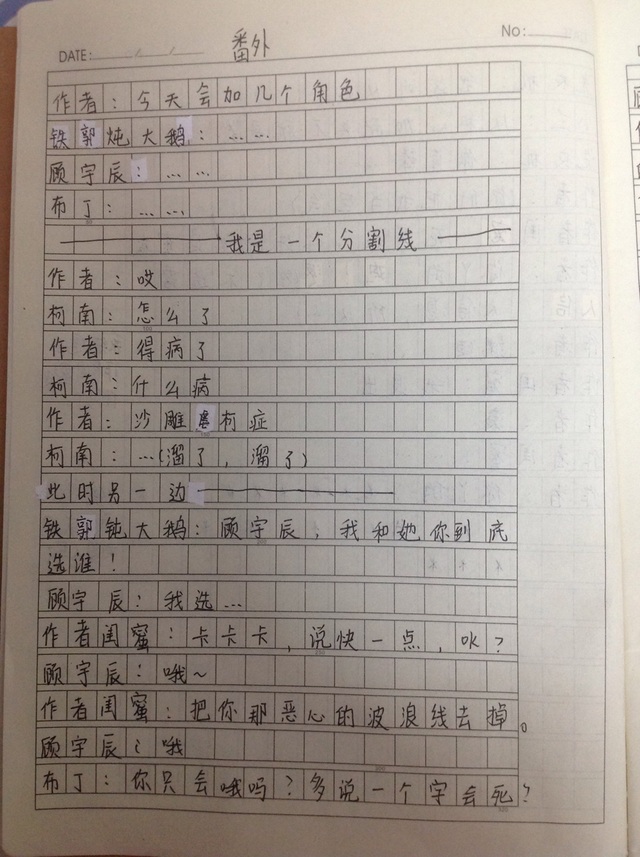 DATE: / /
番外
No:
作者：今天会加几个角色
铁郭炖大鹅：……
顾宇辰：……
布丁：……
——我是一个分割线——
作者：哎
柯南：怎么了
作者：得病了
柯南：什么病
作者：沙雕 柯症
柯南：…(溜了，溜了)
此时另一边——
铁郭钝大鹅：顾宇辰，我和她你到底
选谁！
顾宇辰：我选…
作者闺蜜：卡卡卡，说快一点，OK？
顾宇辰：哦~
作者闺蜜：把你那恶心的波浪线去掉。
顾宇辰：哦
布丁：你只会哦吗？多说一个字会死？